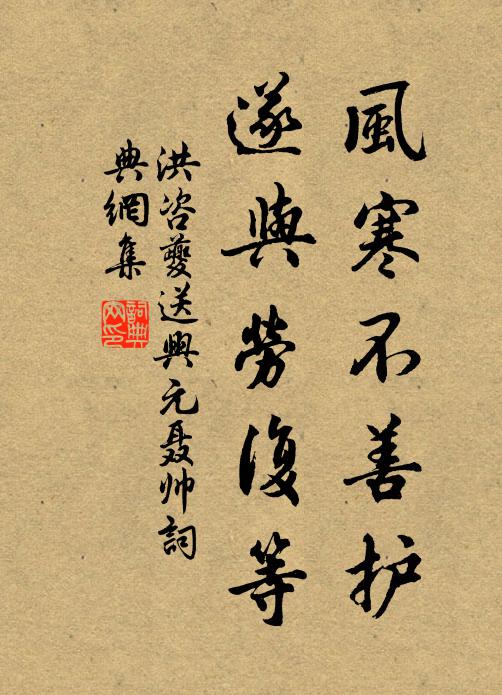 風寒不善护
遂與勞復等
洪咨夔送興元聂帅詞
典網集
詞典网印